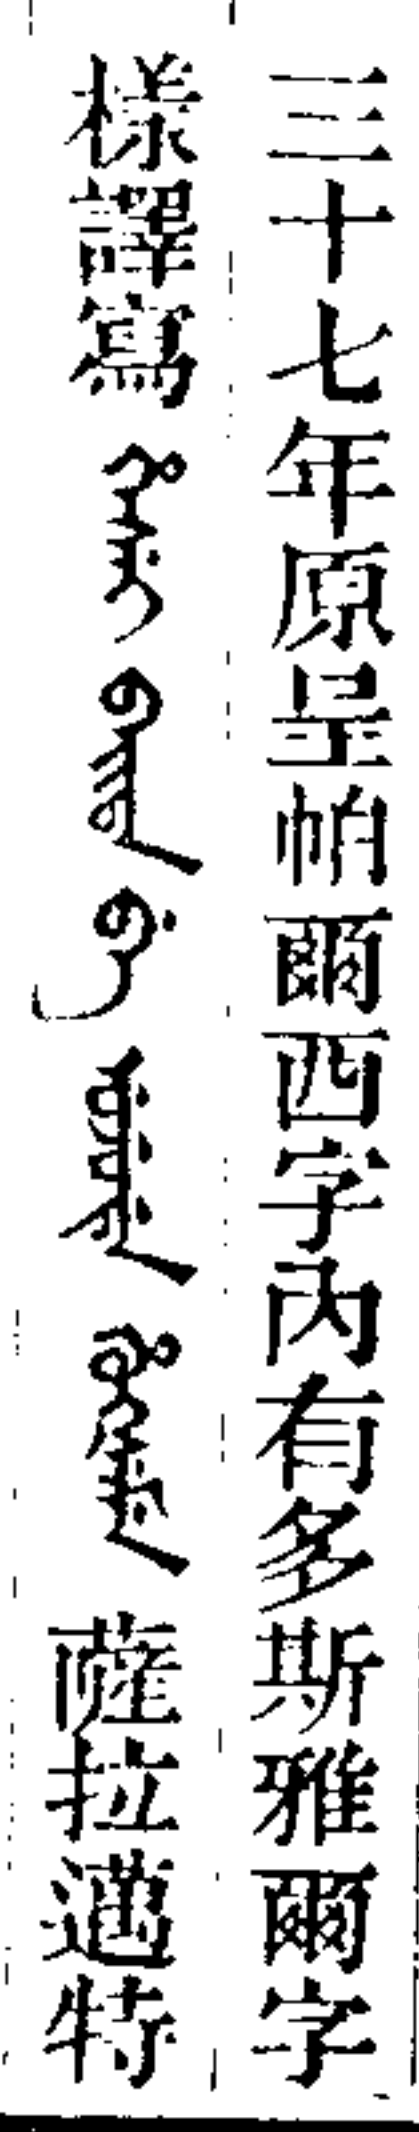 三十七年原呈帕爾西字內有多斯雅爾字
樣譯寫 薩拉邁特